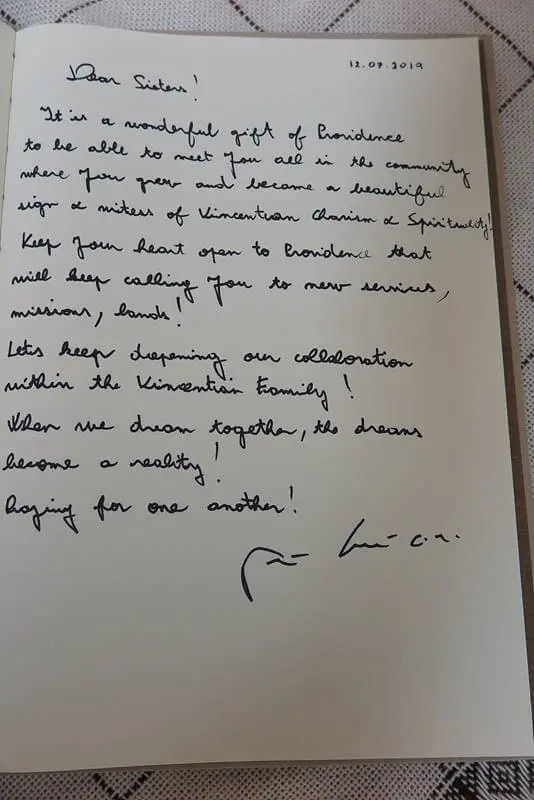 12.07.2019
Dear Sisters!
It is a wonderful gift of Providence
to be able to meet you all in the community
where you grew and became a beautiful
sign & witess of Vincentian Charism & Spirituality!
Keep your heart open to Providence that
will keep calling you to new services,
missions, lands!
Lets keep deepening our collaboration
within the Vincentian Family!
When we dream together, the dreams
become a reality!
Praying for one another!
c.m.